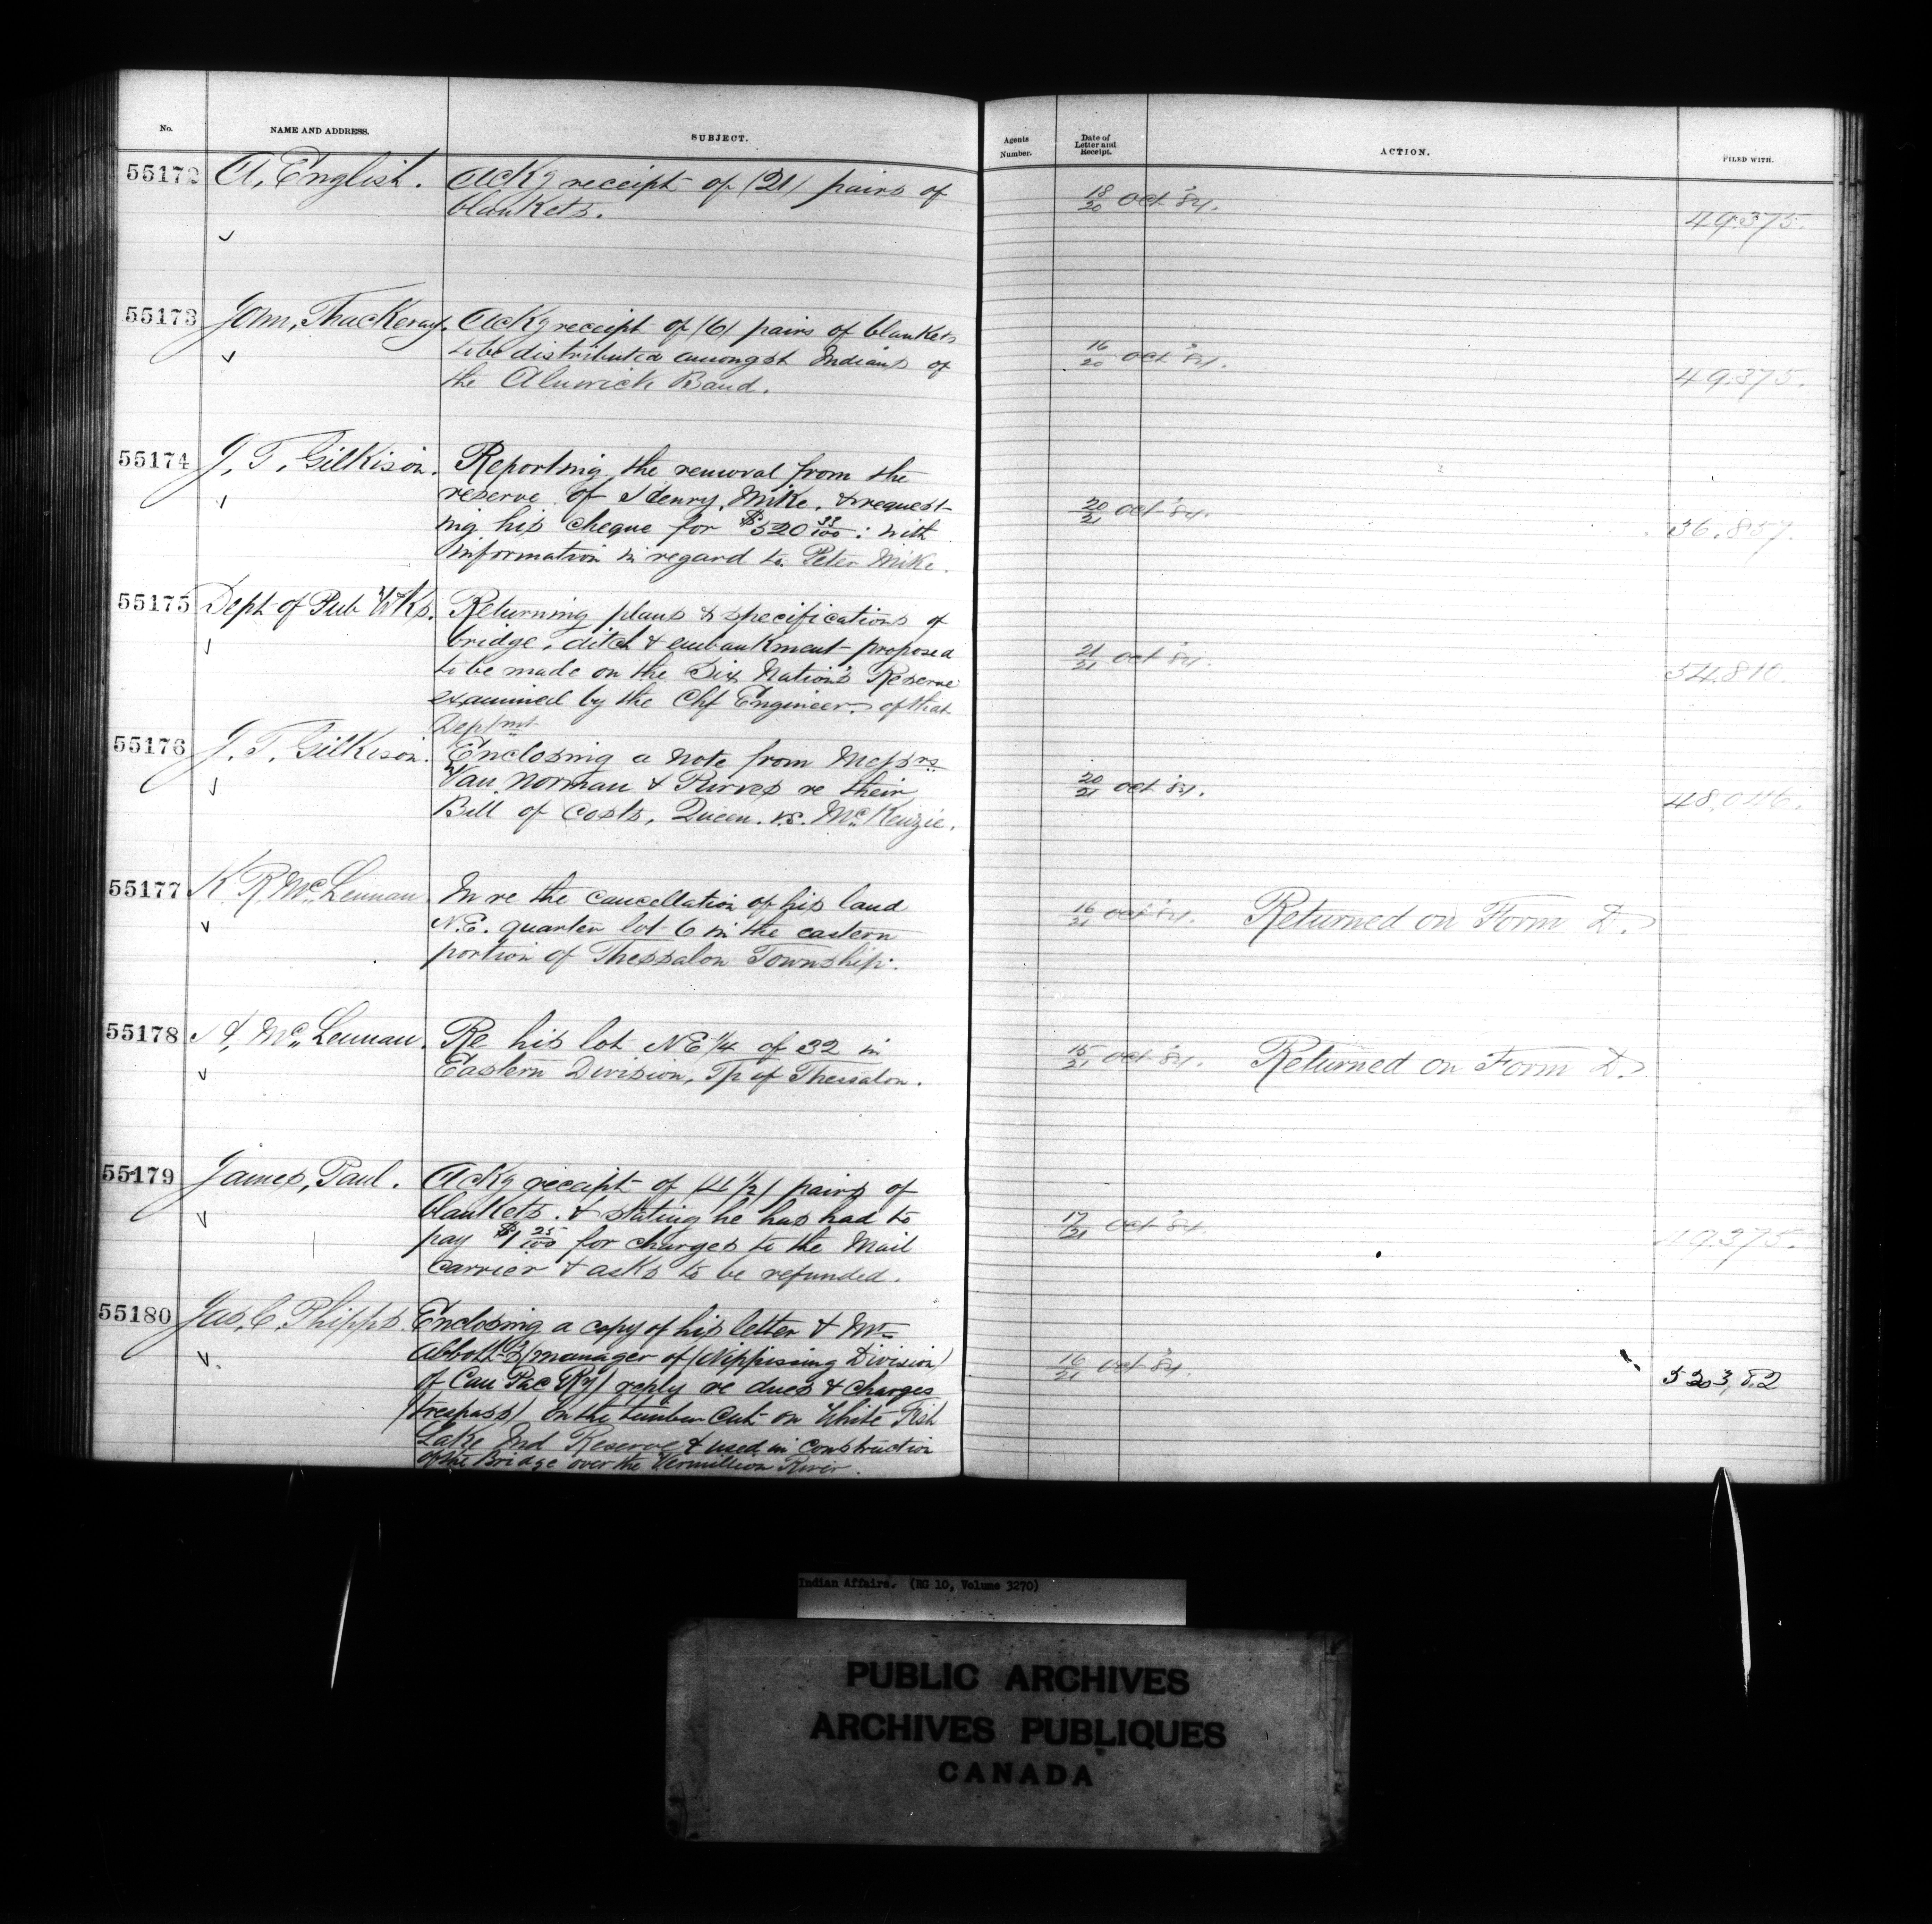 No. NAME AND ADDRESS. SUBJECT. Agents Number. Date of Letter and Receipt. ACTION. FILED WITH.
55172 A. English. Ackg receipt of (21) pairs of 18/20 Oct '84. 49375.
blankets.
55173 John, Thackeray. Ackg receipt of (6) pairs of blankets
to be distributed amongst Indians of 16/20 Oct '84. 49.375.
the Alnwick Band.
55174 J. T. Gilkison. Reporting the removal from the
reserve of Henry, Mike, & request- 20/21 Oct '84. 36.857.
ing his cheque for $520 33/100: with
information in regard to Peter Mike.
55175 Dept of Pub Wks. Returning plans & specifications of
bridge, ditch & embankment proposed 21/21 Oct '84. 54.810.
to be made on the Six Nations Reserve
examined by the Chf Engineer of that
Deptmt
55176 J. T. Gilkison. Enclosing a note from Messrs
Van Norman & Purves re their 20/21 Oct '84. 48,046.
Bill of Costs, Queen. vs. McKenzie.
55177 K. R. McLennan In re the cancellation of his land 16/21 Oct '84. Returned on Form D.
N.E. quarter lot 6 in the eastern
portion of Thessalon Township.
55178 A. McLennan. Re his lot NE 1/4 of 32 in 15/21 Oct '84. Returned on Form D.
Eastern Division, Tp of Thessalon.
55179 James, Paul. Ackg receipt of (4 1/2) pairs of
blankets. & stating he has had to 17/21 Oct '84. 49.375.
pay $1 25/100 for charges to the Mail
Carrier & asks to be refunded.
55180 Jas. C. Phipps. Enclosing a copy of his letter & Mr
Abbott's (manager of (Nippissing Division) 16/21 Oct '84.
of Can Pac Ry) reply re dues & charges
(trespass) on the timber cut on White Fish
Lake Ind Reserve & used in construction
of the Bridge over the Vermillion River.
Indian Affairs. (RG 10, Volume 3270)
PUBLIC ARCHIVES
ARCHIVES PUBLIQUES
CANADA